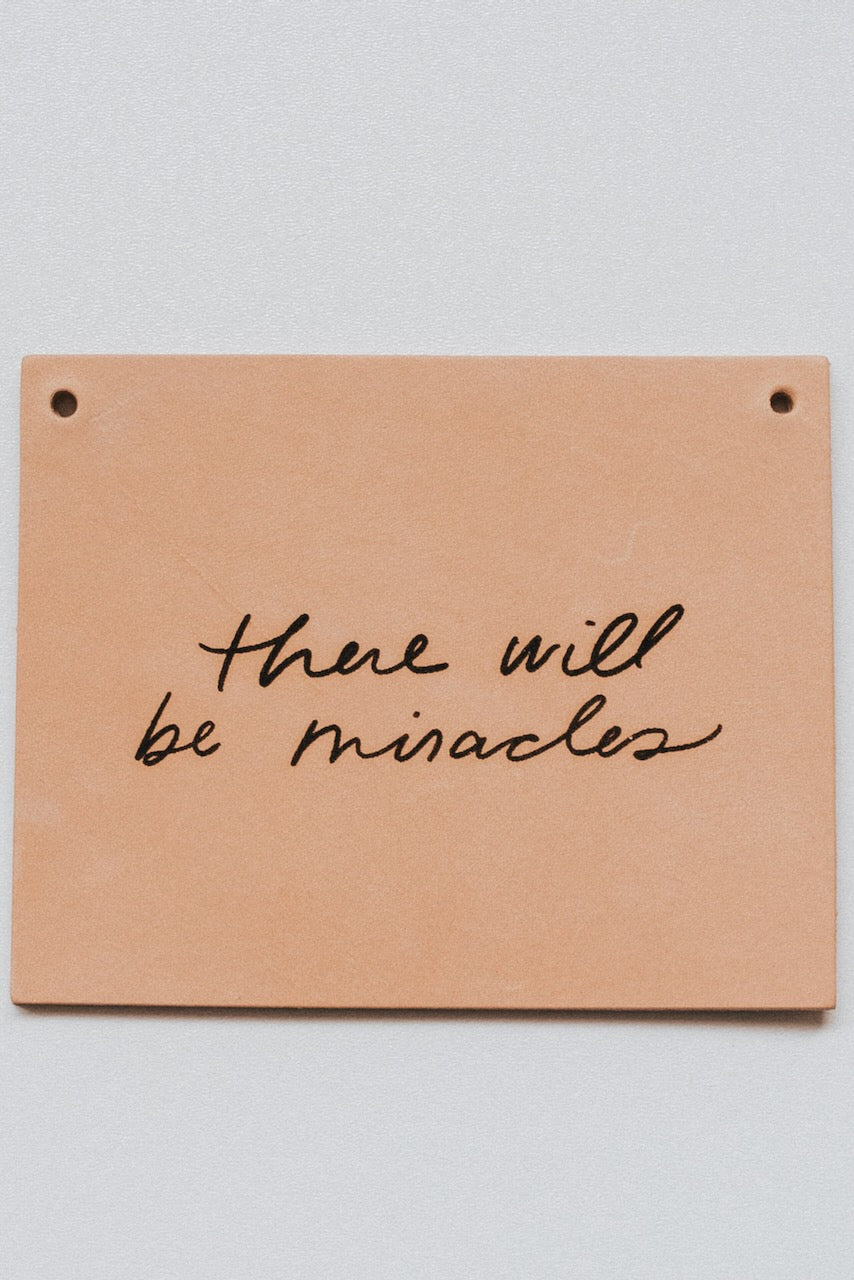 there will
be miracles